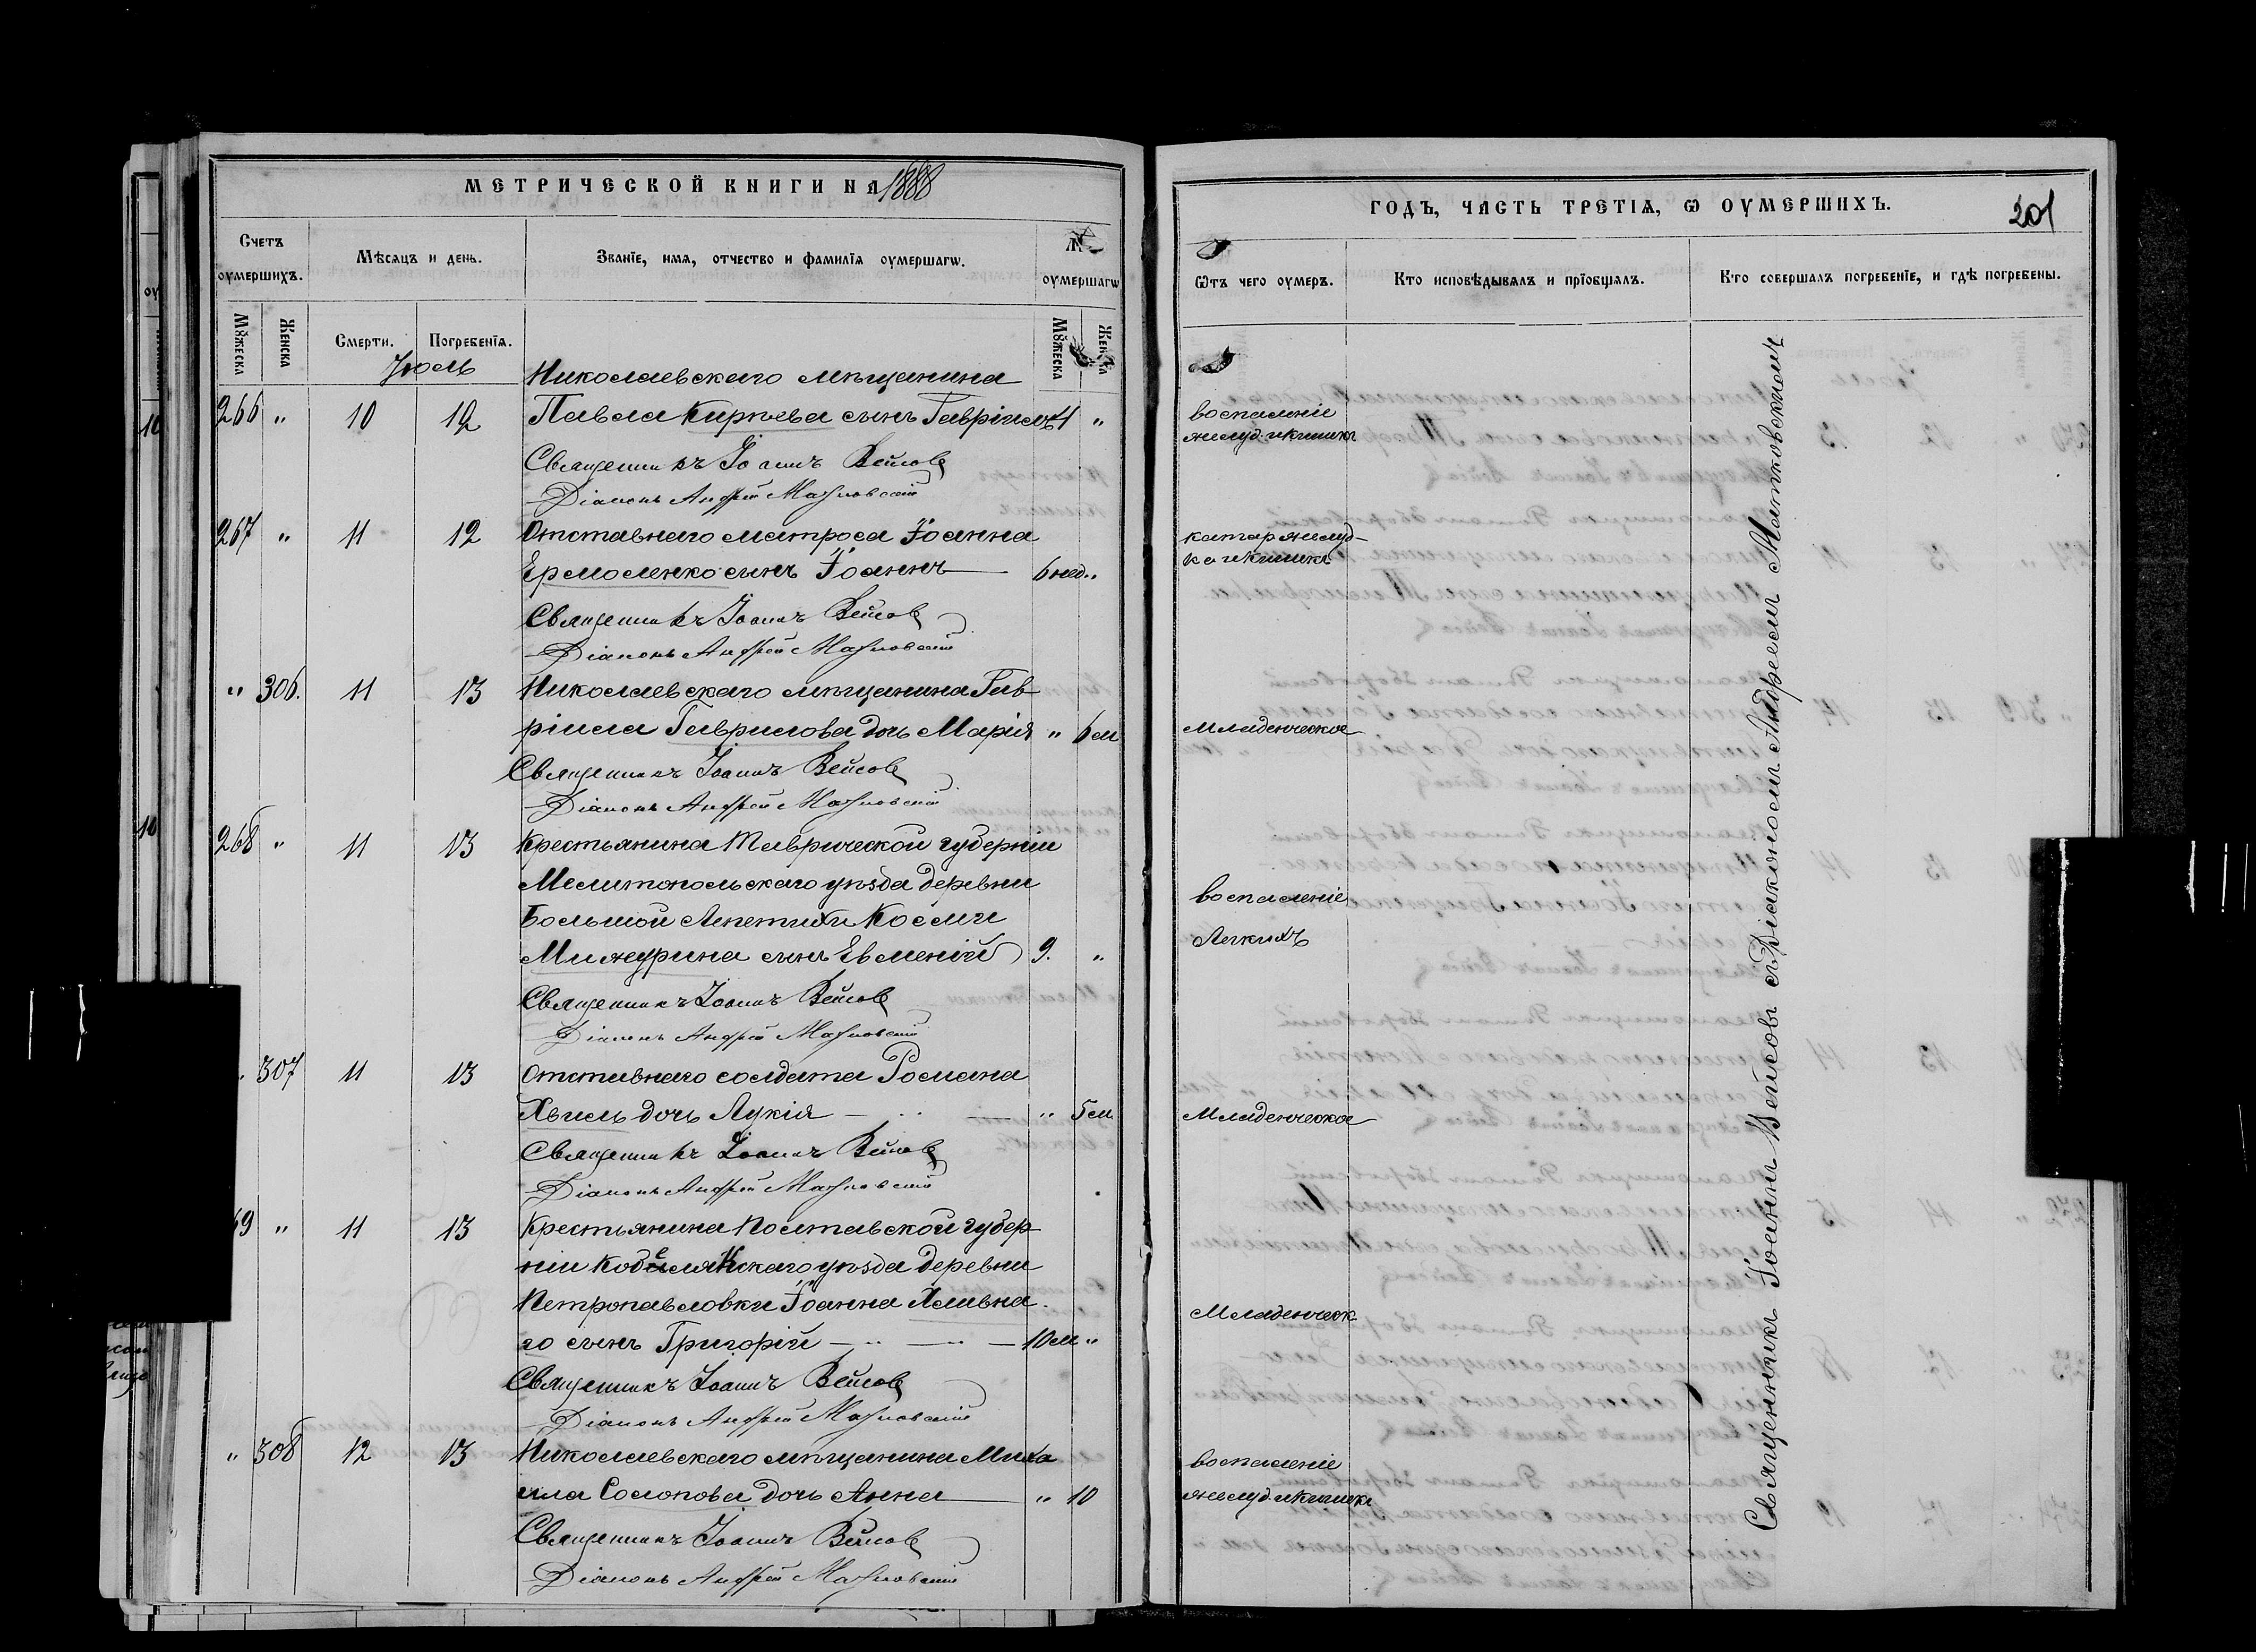 МЕТРИЧЕСКОЙ КНИГИ НА 1888
Счетъ оумершихъ.
Мѣсяцъ и день.
Званіе, имя, отчество и фамилія оумершагѡ.
оумершагѡ
Мꙋжеска
Женска
Смерти.
Погребенія.
Мꙋжеска
Женска
Іюль
Николаевскаго мѣщанина
266 " 10 12 Павла Кирѣева сынъ Гавріилъ 1 "
Священникъ Іоаннъ Вейсовъ
Діаконъ Андрей Матковскій
267 " 11 12 Отставнаго матроса Іоанна
Ермоленко сынъ Іоаннъ — 6 нед. "
Священникъ Іоаннъ Вейсовъ
Діаконъ Андрей Матковскій
" 306. 11 13 Николаевскаго мѣщанина Гав-
ріила Гаврилова дочь Марія " 6 м
Священникъ Іоаннъ Вейсовъ
Діаконъ Андрей Матковскій
268 " 11 13 Крестьянина Таврической губерніи
Мелитопольскаго уѣзда деревни
Большой Лепетихи Космы
Минжурина сынъ Евменій 9. "
Священникъ Іоаннъ Вейсовъ
Діаконъ Андрей Матковскій
307 11 13 Отставнаго солдата Романа
Хвиль дочь Лукія — " 5 м.
Священникъ Іоаннъ Вейсовъ
Діаконъ Андрей Матковскій
69 " 11 13 Крестьянина Полтавской губер-
ніи Кобелякскаго уѣзда деревни
Петропавловки Іоанна Хлывна-
го сынъ Григорій — 10 м "
Священникъ Іоаннъ Вейсовъ
Діаконъ Андрей Матковскій
" 308 12 13 Николаевскаго мѣщанина Миха
ила Солопова дочь Анна — " 10
Священникъ Іоаннъ Вейсовъ
Діаконъ Андрей Матковскій
ГОДЪ, ЧАСТЬ ТРЕТІЯ, Ѡ ОУМЕРШИХЪ.
201
Ѿтъ чего оумеръ.
Кто исповѣдывалъ и пріобщалъ.
Кто совершалъ погребеніе, и гдѣ погребены.
воспаленіе
желуд. и кишекъ
катар желуд-
ка и кишекъ
младенческое
воспаленіе
легкихъ
Младенческое
Младенческ
воспаленіе
желуд. и кишекъ
Священникъ Іоаннъ Вейсовъ съ Діакономъ Андреемъ Матковскимъ